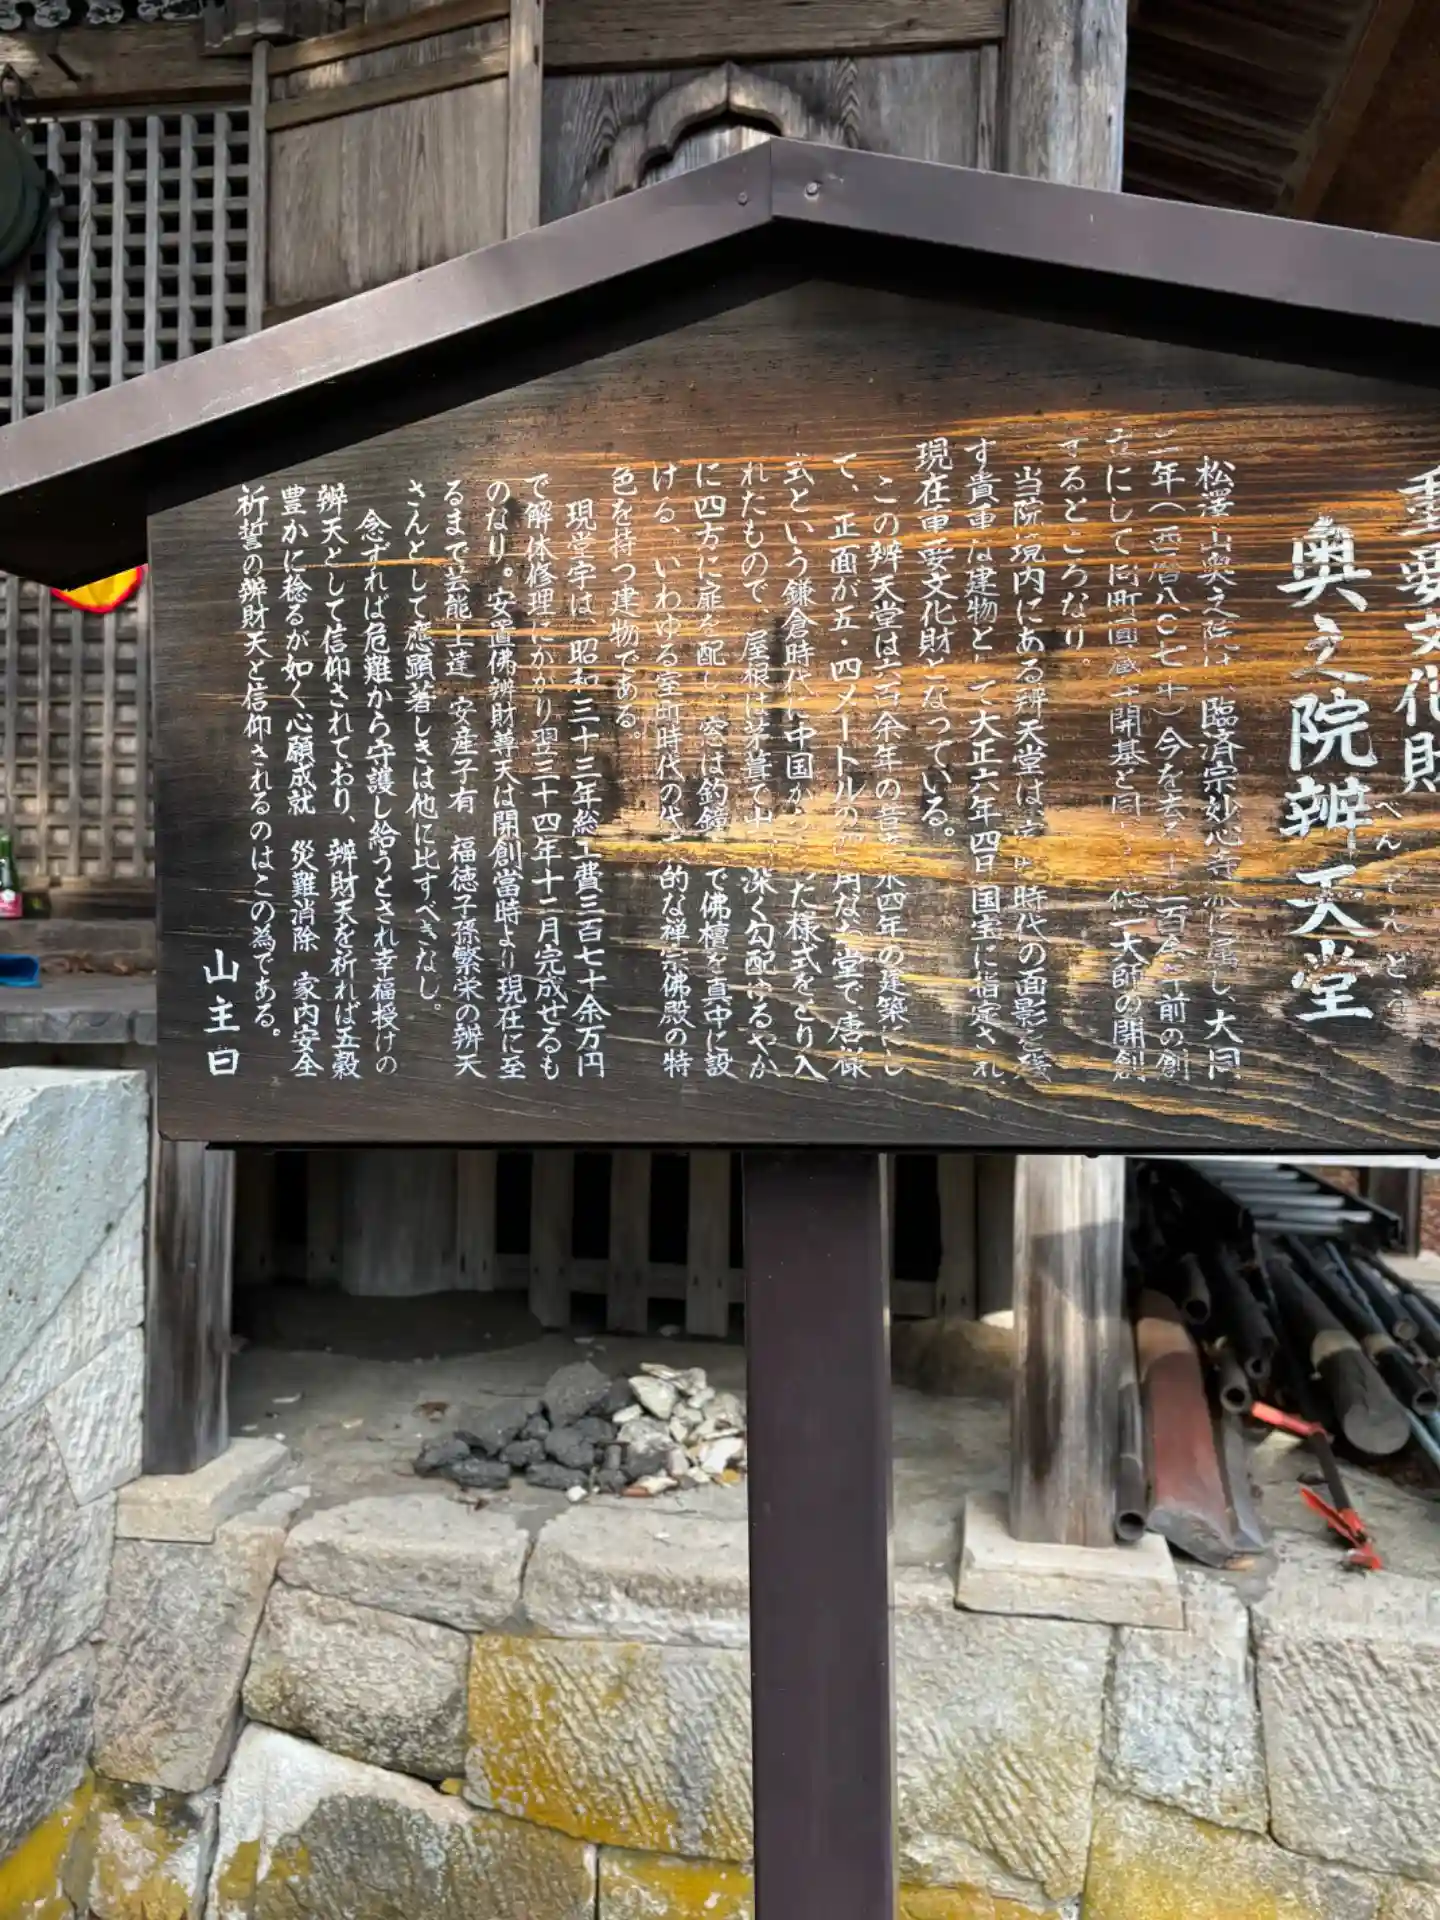 重要文化財
奥之院辨天堂
べんてんどう
松澤山奥之院は、臨済宗妙心寺派に属し、大同
二年(西暦八〇七年)今を去る千二百余年前の創
立にして同町圓蔵寺開基と同じ 徳一大師の開創
するところなり。
当院境内にある辨天堂は室町時代の面影を残
す貴重な建物として大正六年四日国宝に指定され、
現在重要文化財となっている。
この辨天堂は六百余年の昔 永四年の建築にし
て、正面が五・四メートルの 角なお堂で唐様
式という鎌倉時代に中国から った様式をとり入
れたもので、屋根は茅葺で 深く勾配ゆるやか
に四方に扉を配し、窓は釣鐘 で佛檀を真中に設
ける、いわゆる室町時代の代 的な禅宗佛殿の特
色を持つ建物である。
現堂宇は、昭和三十三年総工費三百七十余万円
で解体修理にかかり翌三十四年十二月完成せるも
のなり。安置佛辨財尊天は開創當時より現在に至
るまで芸能上達 安産子有 福徳子孫繁栄の辨天
さんとして應顕著しきは他に比すべきなし。
念ずれば危難から守護し給うとされ幸福授けの
辨天として信仰されており、辨財天を祈れば五穀
豊かに稔るが如く心願成就 災難消除 家内安全
祈誓の辨財天と信仰されるのはこの為である。
山主曰